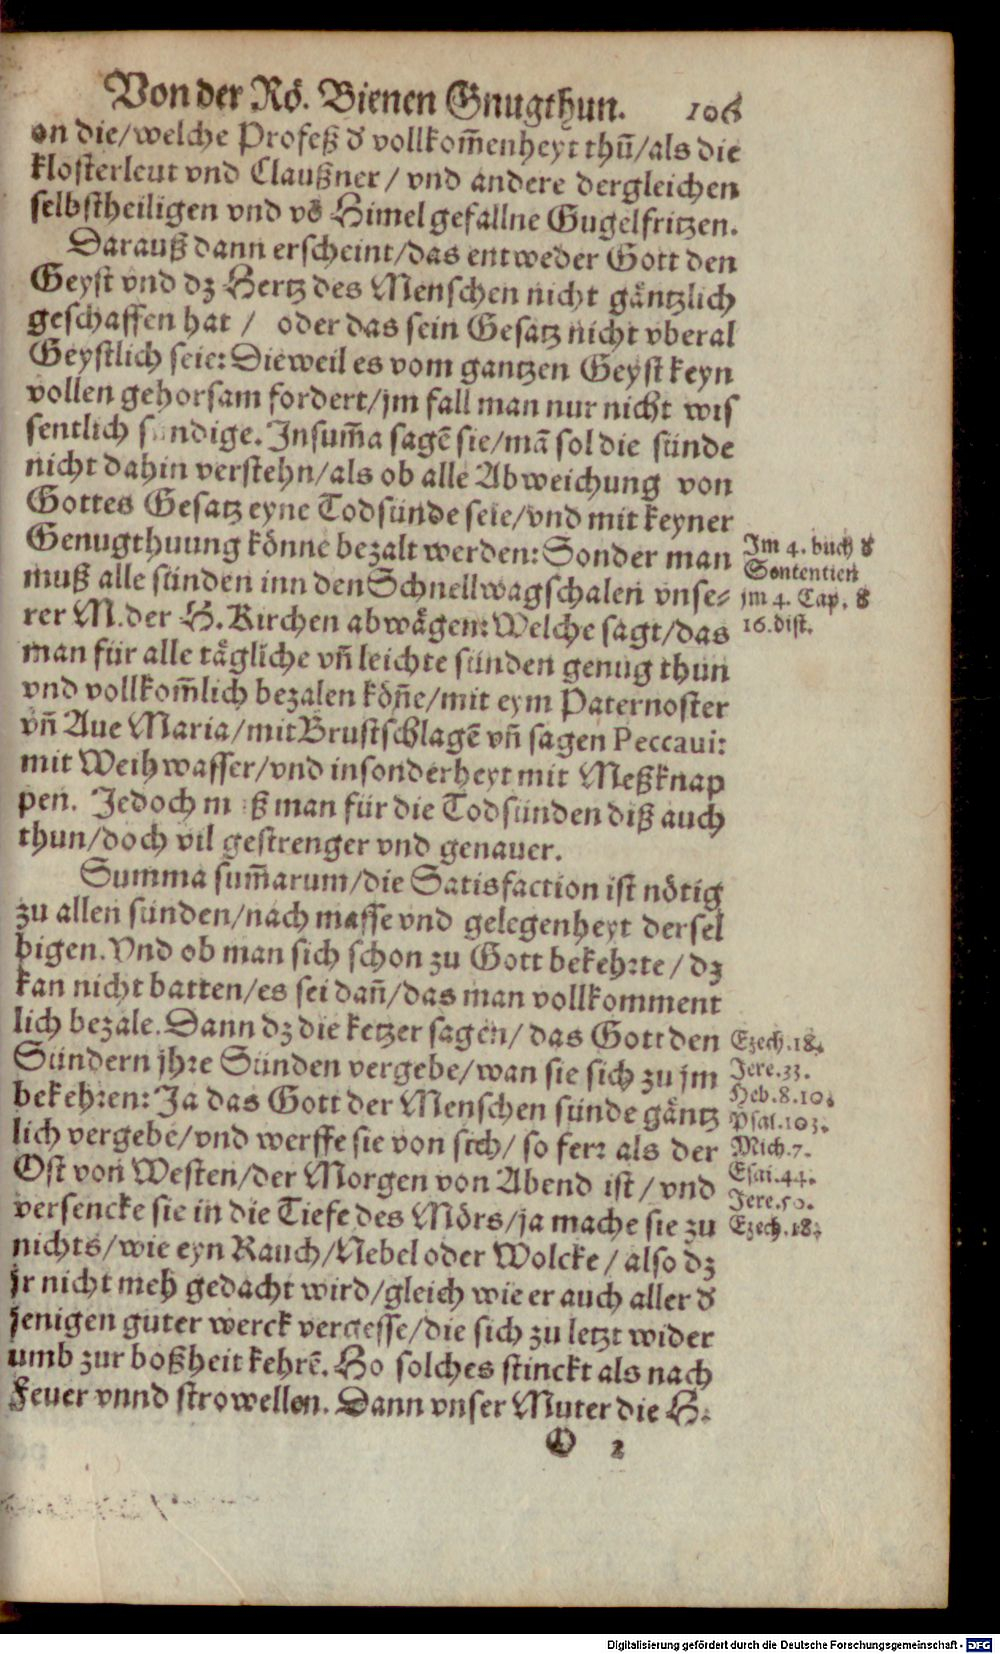 Von der Rö. Bienen Gnugthun. 106
an die/welche Profeß d̕ vollkom̃enheyt thũ/als die
klosterleut vnd Claußner / vnd andere dergleichen
selbstheiligen vnd võ Himel gefallne Gugelfritzen.
Darauß dann erscheint/das entweder Gott den
Geyst vnd dz Hertz des Menschen nicht gäntzlich
geschaffen hat / oder das sein Gesatz nicht vberal
Geystlich seie: Dieweil es vom gantzen Geyst keyn
vollen gehorsam fordert/jm fall man nur nicht wis
sentlich sündige. Insum̃a sagẽ sie/mã sol die sünde
nicht dahin verstehn/als ob alle Abweichung von
Gottes Gesatz eyne Todsünde seie/vnd mit keyner
Genugthuung könne bezalt werden: Sonder man
muß alle sünden inn den Schnellwagschalen vnse-
rer M. der H. Kirchen abwägen: Welche sagt/das
man für alle tägliche vñ leichte sünden genug thun
vnd vollkom̃lich bezalen köñe/mit eym Paternoster
vñ Aue Maria/mit Brustschlagẽ vñ sagen Peccaui:
mit Weihwasser/vnd insonderheyt mit Meßknap
pen. Jedoch muß man für die Todsünden diß auch
thun/doch vil gestrenger vnd genauer.
Im 4. buch d̕
Sententien
jm 4. Cap. d̕
16. dist.
Summa sum̃arum/die Satisfaction ist nötig
zu allen sünden/nach masse vnd gelegenheyt dersel
bigen. Vnd ob man sich schon zu Gott bekehrte / dz
kan nicht batten/es sei dañ/das man vollkomment
lich bezale. Dann dz die ketzer sagen/ das Gott den
Sündern jhre Sünden vergebe/wan sie sich zu jm
bekehren: Ja das Gott der Menschen sünde gäntz
lich vergebe/vnd werffe sie von sich/ so ferr als der
Ost von Westen/der Morgen von Abend ist / vnd
versencke sie in die Tiefe des Mörs/ja mache sie zu
nichts/wie eyn Rauch/Nebel oder Wolcke / also dz
jr nicht meh gedacht wird/gleich wie er auch aller d̕
jenigen guter werck vergesse/die sich zu letzt wider
umb zur boßheit kehrẽ. Ho solches stinckt als nach
Feuer vnnd strowellen. Dann vnser Muter die H.
Ezech.18.
Jere.33.
Heb.8.10.
Psal.103.
Mich.7.
Esai.44.
Jere.50.
Ezech.18.
O 2
Digitalisierung gefördert durch die Deutsche Forschungsgemeinschaft - DFG